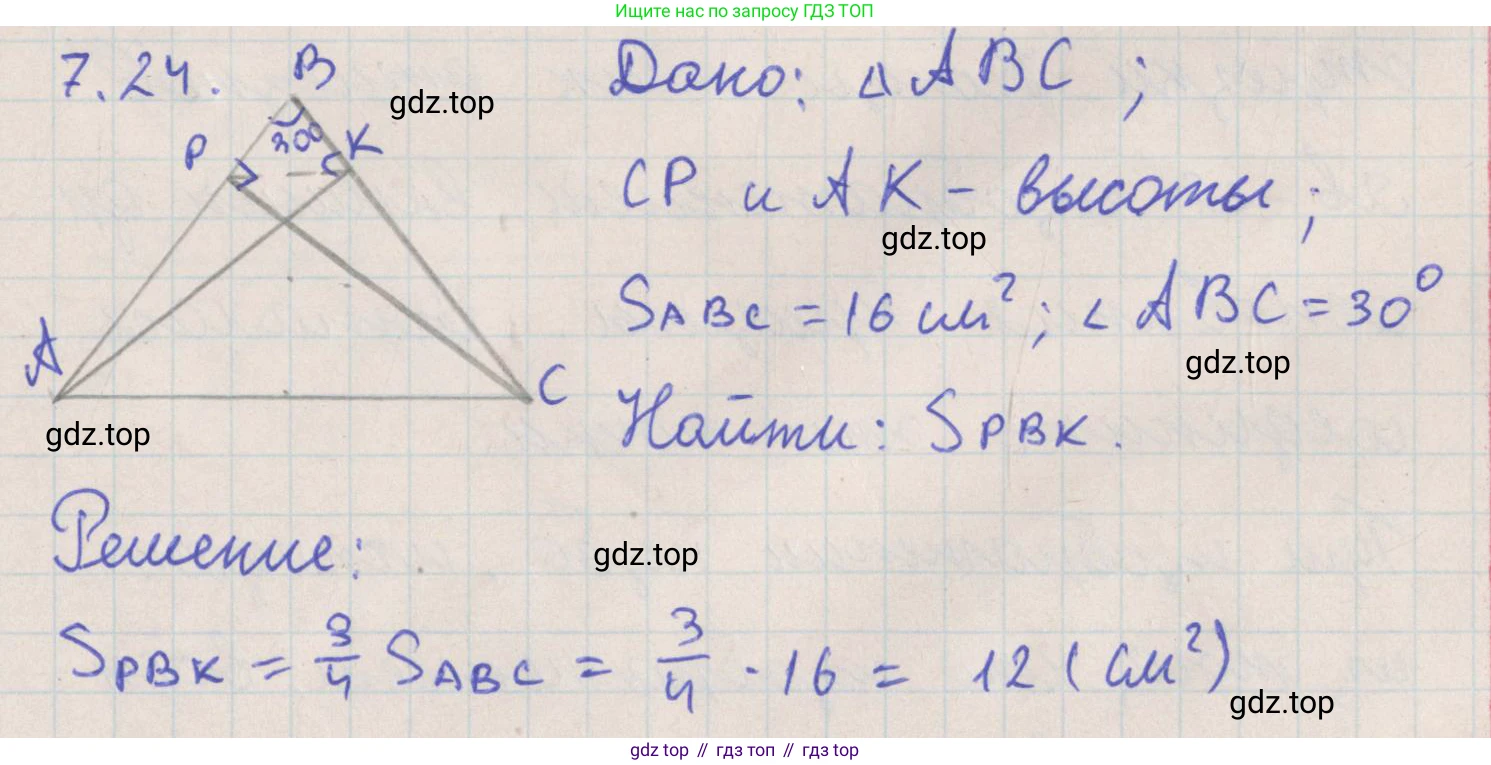 Ищите нас по запросу ГДЗ ТОП
7.24.
B
30°
P
K
A
C
gdz.top
Дано: △ ABC ;
CP и AK - высоты ;
gdz.top
S ABC = 16 см² ; ∠ ABC = 30°
gdz.top
Найти: S PBK .
gdz.top
Решение:
gdz.top
S PBK = 3/4 S ABC = 3/4 · 16 = 12 (см²)
gdz.top
gdz top // гдз топ // gdz top